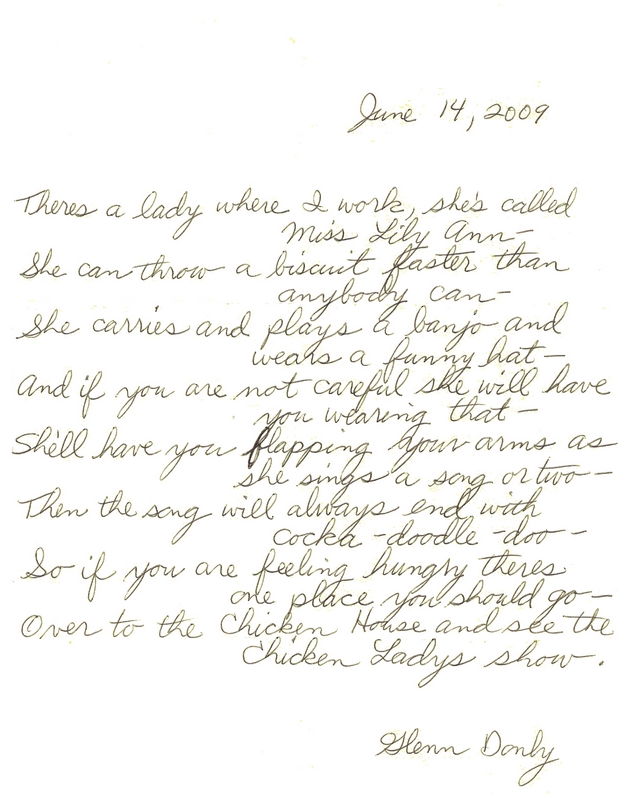 June 14, 2009
Theres a lady where I work, she's called
Miss Lily Ann-
She can throw a biscuit faster than
anybody can-
She carries and plays a banjo and
wears a funny hat-
And if you are not careful she will have
you wearing that-
She'll have you flapping your arms as
she sings a song or two-
Then the song will always end with
cocka-doodle-doo-
So if you are feeling hungry theres
one place you should go-
Over to the Chicken House and see the
Chicken Ladys show.
Glenn Danby